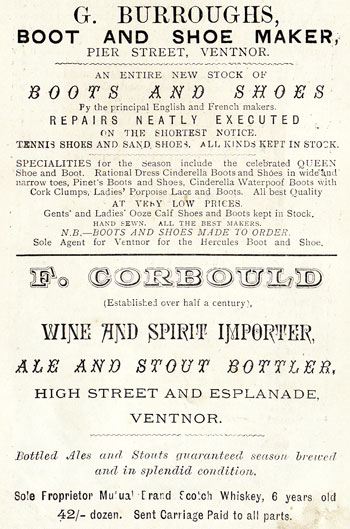 G. BURROUGHS,
BOOT AND SHOE MAKER,
PIER STREET, VENTNOR.
AN ENTIRE NEW STOCK OF
BOOTS AND SHOES
By the principal English and French makers.
REPAIRS NEATLY EXECUTED
ON THE SHORTEST NOTICE.
TENNIS SHOES AND SAND SHOES. ALL KINDS KEPT IN STOCK.
SPECIALITIES for the Season include the celebrated QUEEN
Shoe and Boot. Rational Dress Cinderella Boots and Shoes in wide and
narrow toes, Pinet's Boots and Shoes, Cinderella Waterpoof Boots with
Cork Clumps, Ladies' Porpoise Lace and Boots. All best Quality
AT VERY LOW PRICES.
Gents' and Ladies' Ooze Calf Shoes and Boots kept in Stock.
HAND SEWN. ALL THE BEST MAKERS.
N.B.—BOOTS AND SHOES MADE TO ORDER.
Sole Agent for Ventnor for the Hercules Boot and Shoe.
F. CORBOULD
(Established over half a century),
WINE AND SPIRIT IMPORTER,
ALE AND STOUT BOTTLER,
HIGH STREET AND ESPLANADE,
VENTNOR.
Bottled Ales and Stouts guaranteed season brewed
and in splendid condition.
Sole Proprietor Mutual Brand Scotch Whiskey, 6 years old
42/- dozen. Sent Carriage Paid to all parts.